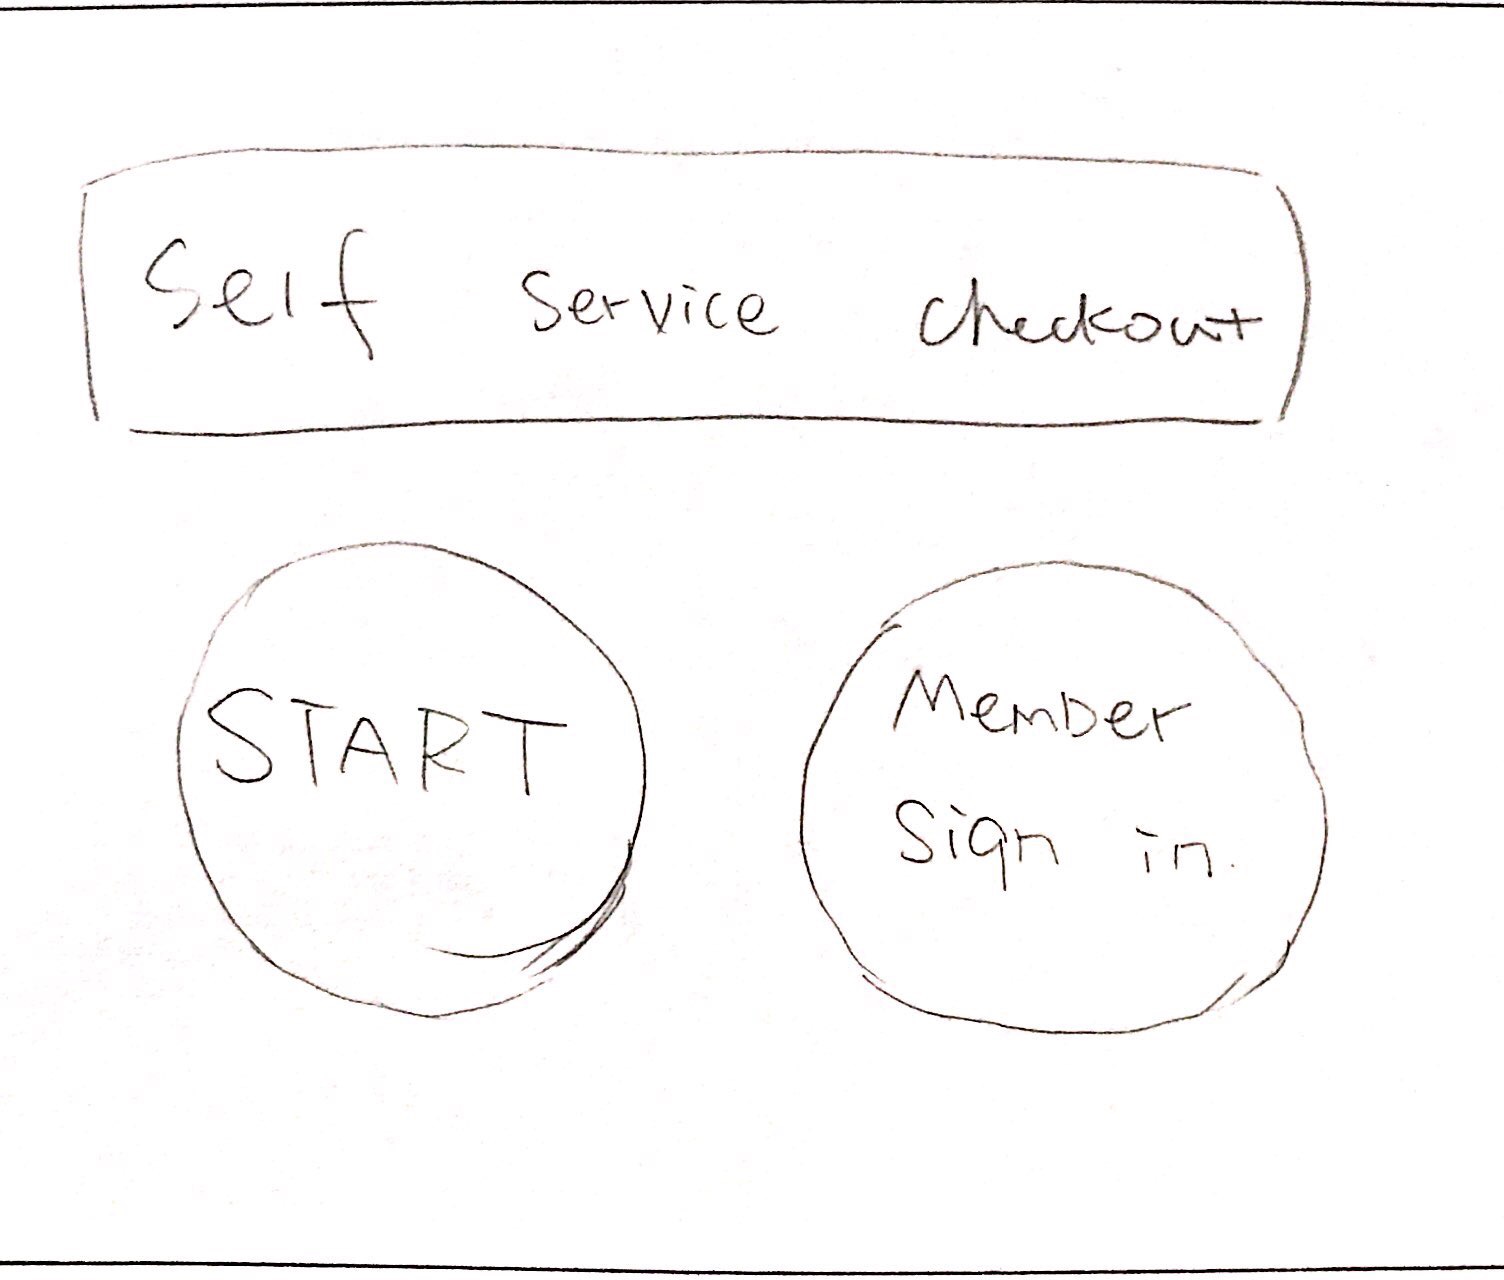 Self Service Checkout
START
Member
Sign in.